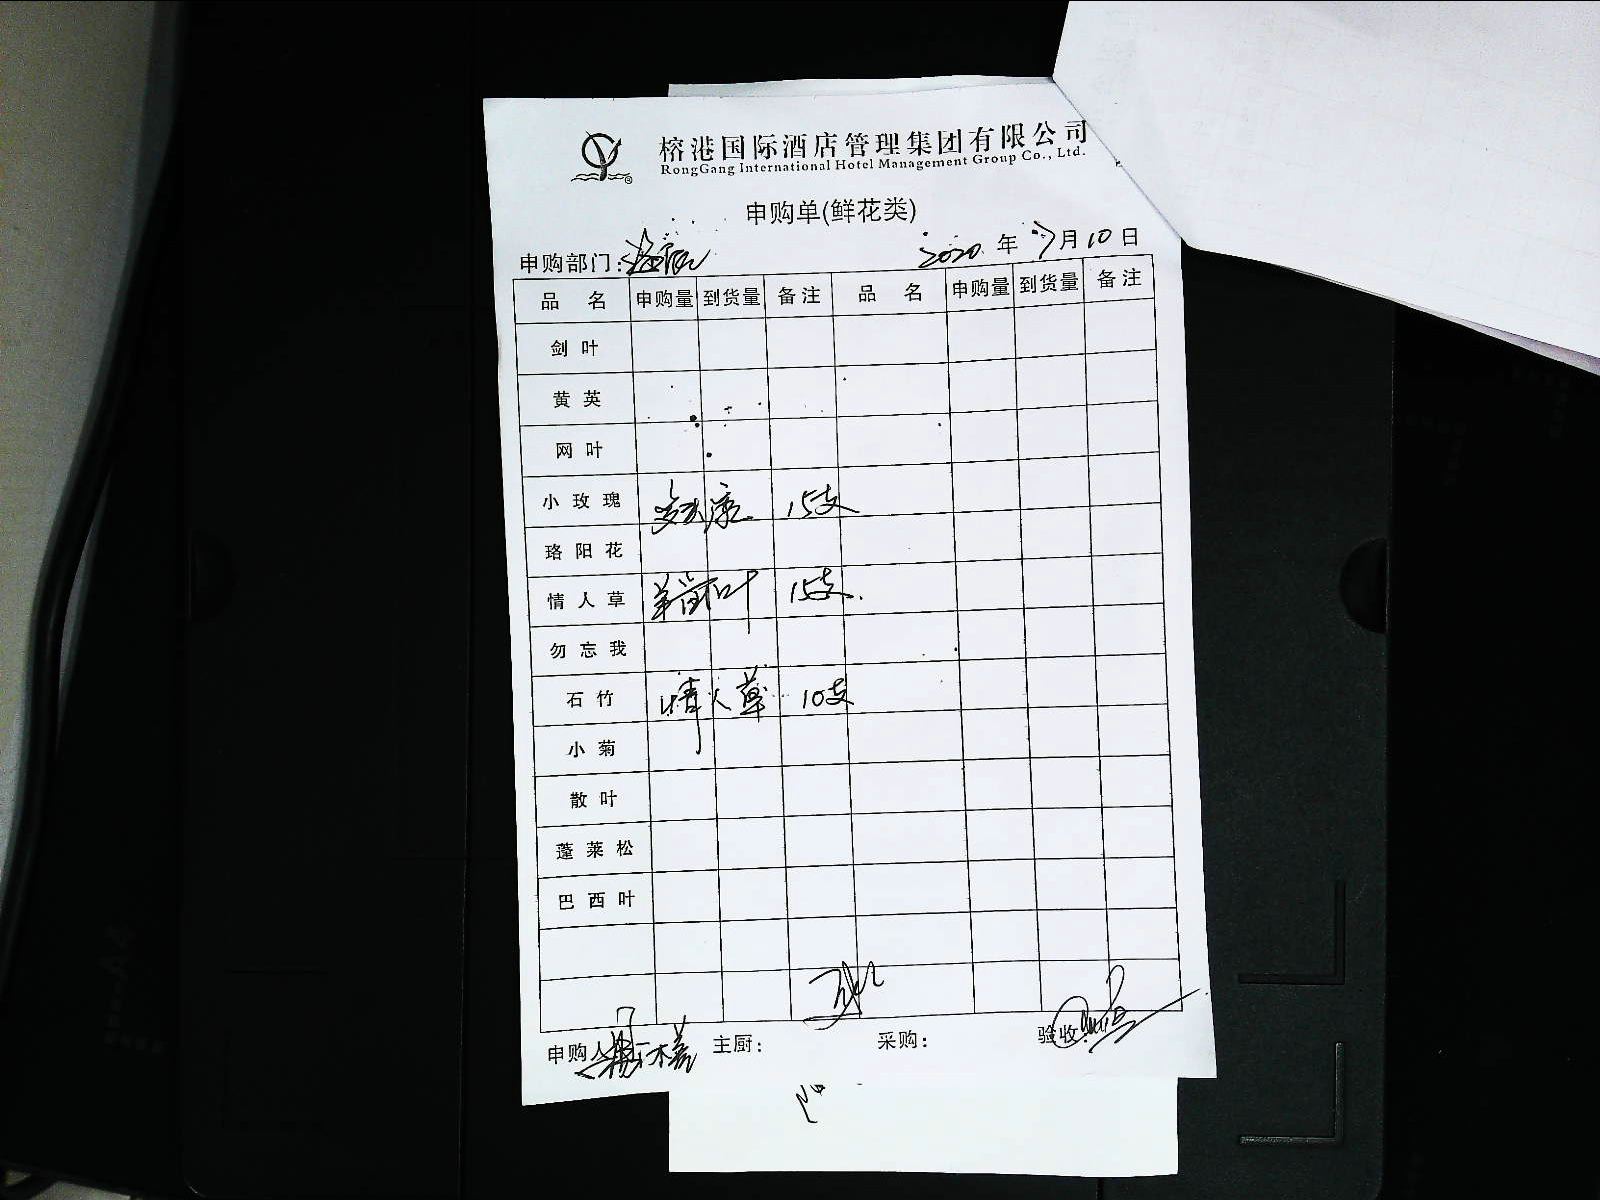 榕港国际酒店管理集团有限公司
RongGang International Hotel Management Group Co., Ltd.
申购单(鲜花类)
申购部门: 2020 年 7 月 10 日
品 名 申购量 到货量 备注 品 名 申购量 到货量 备注
剑 叶
黄 英
网 叶
小 玫 瑰 15支
珞 阳 花
情 人 草 叶 15支.
勿 忘 我
石 竹 情人草 10支
小 菊
散 叶
蓬 莱 松
巴 西 叶
申购人 主厨: 采购: 验收: